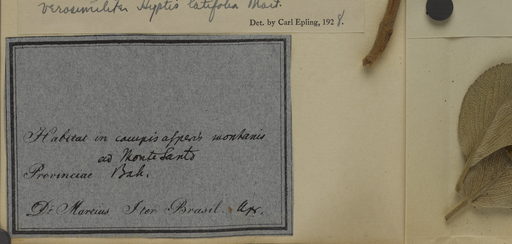 verosimiliter Hyptis latifolia Mart.
Det. by Carl Epling, 1928.
Habitat in campis asperis montanis
ad Monte Santo
Provinciae Bah.
Dr Martius Iter Brasil. Apr.